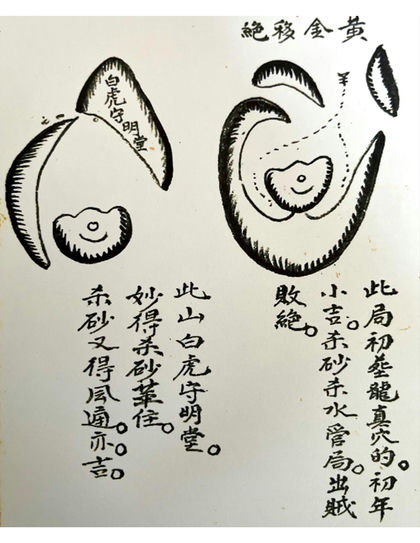 黃金移絕
此局初塟龍真穴的。初年
小吉。杀砂杀水管局。出賊
敗絕。
白虎守明堂
此山白虎守明堂。
妙得杀砂住。
杀砂又得風通。亦吉。